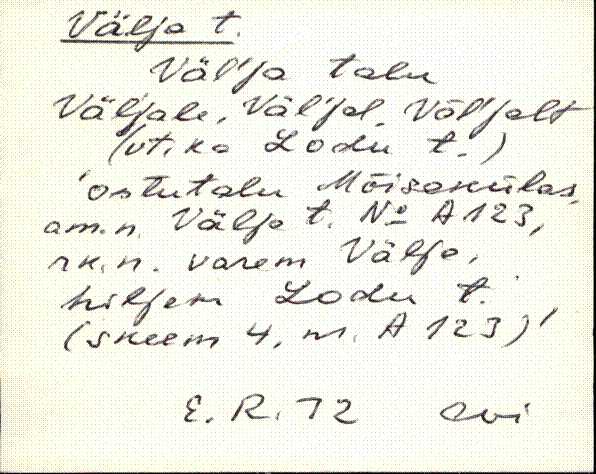 Välja t.
Väl'ja talu
Väljale, Väl'jal, Väl'jalt
(vt. ka Lodu t.)
'ostutalu Mõisakülas,
am.n. Välja t. No A 123,
rk.n. varem Välja,
hiljem Lodu t.
(skeem 4, nr. A 123)'
E. R. 72 Avi